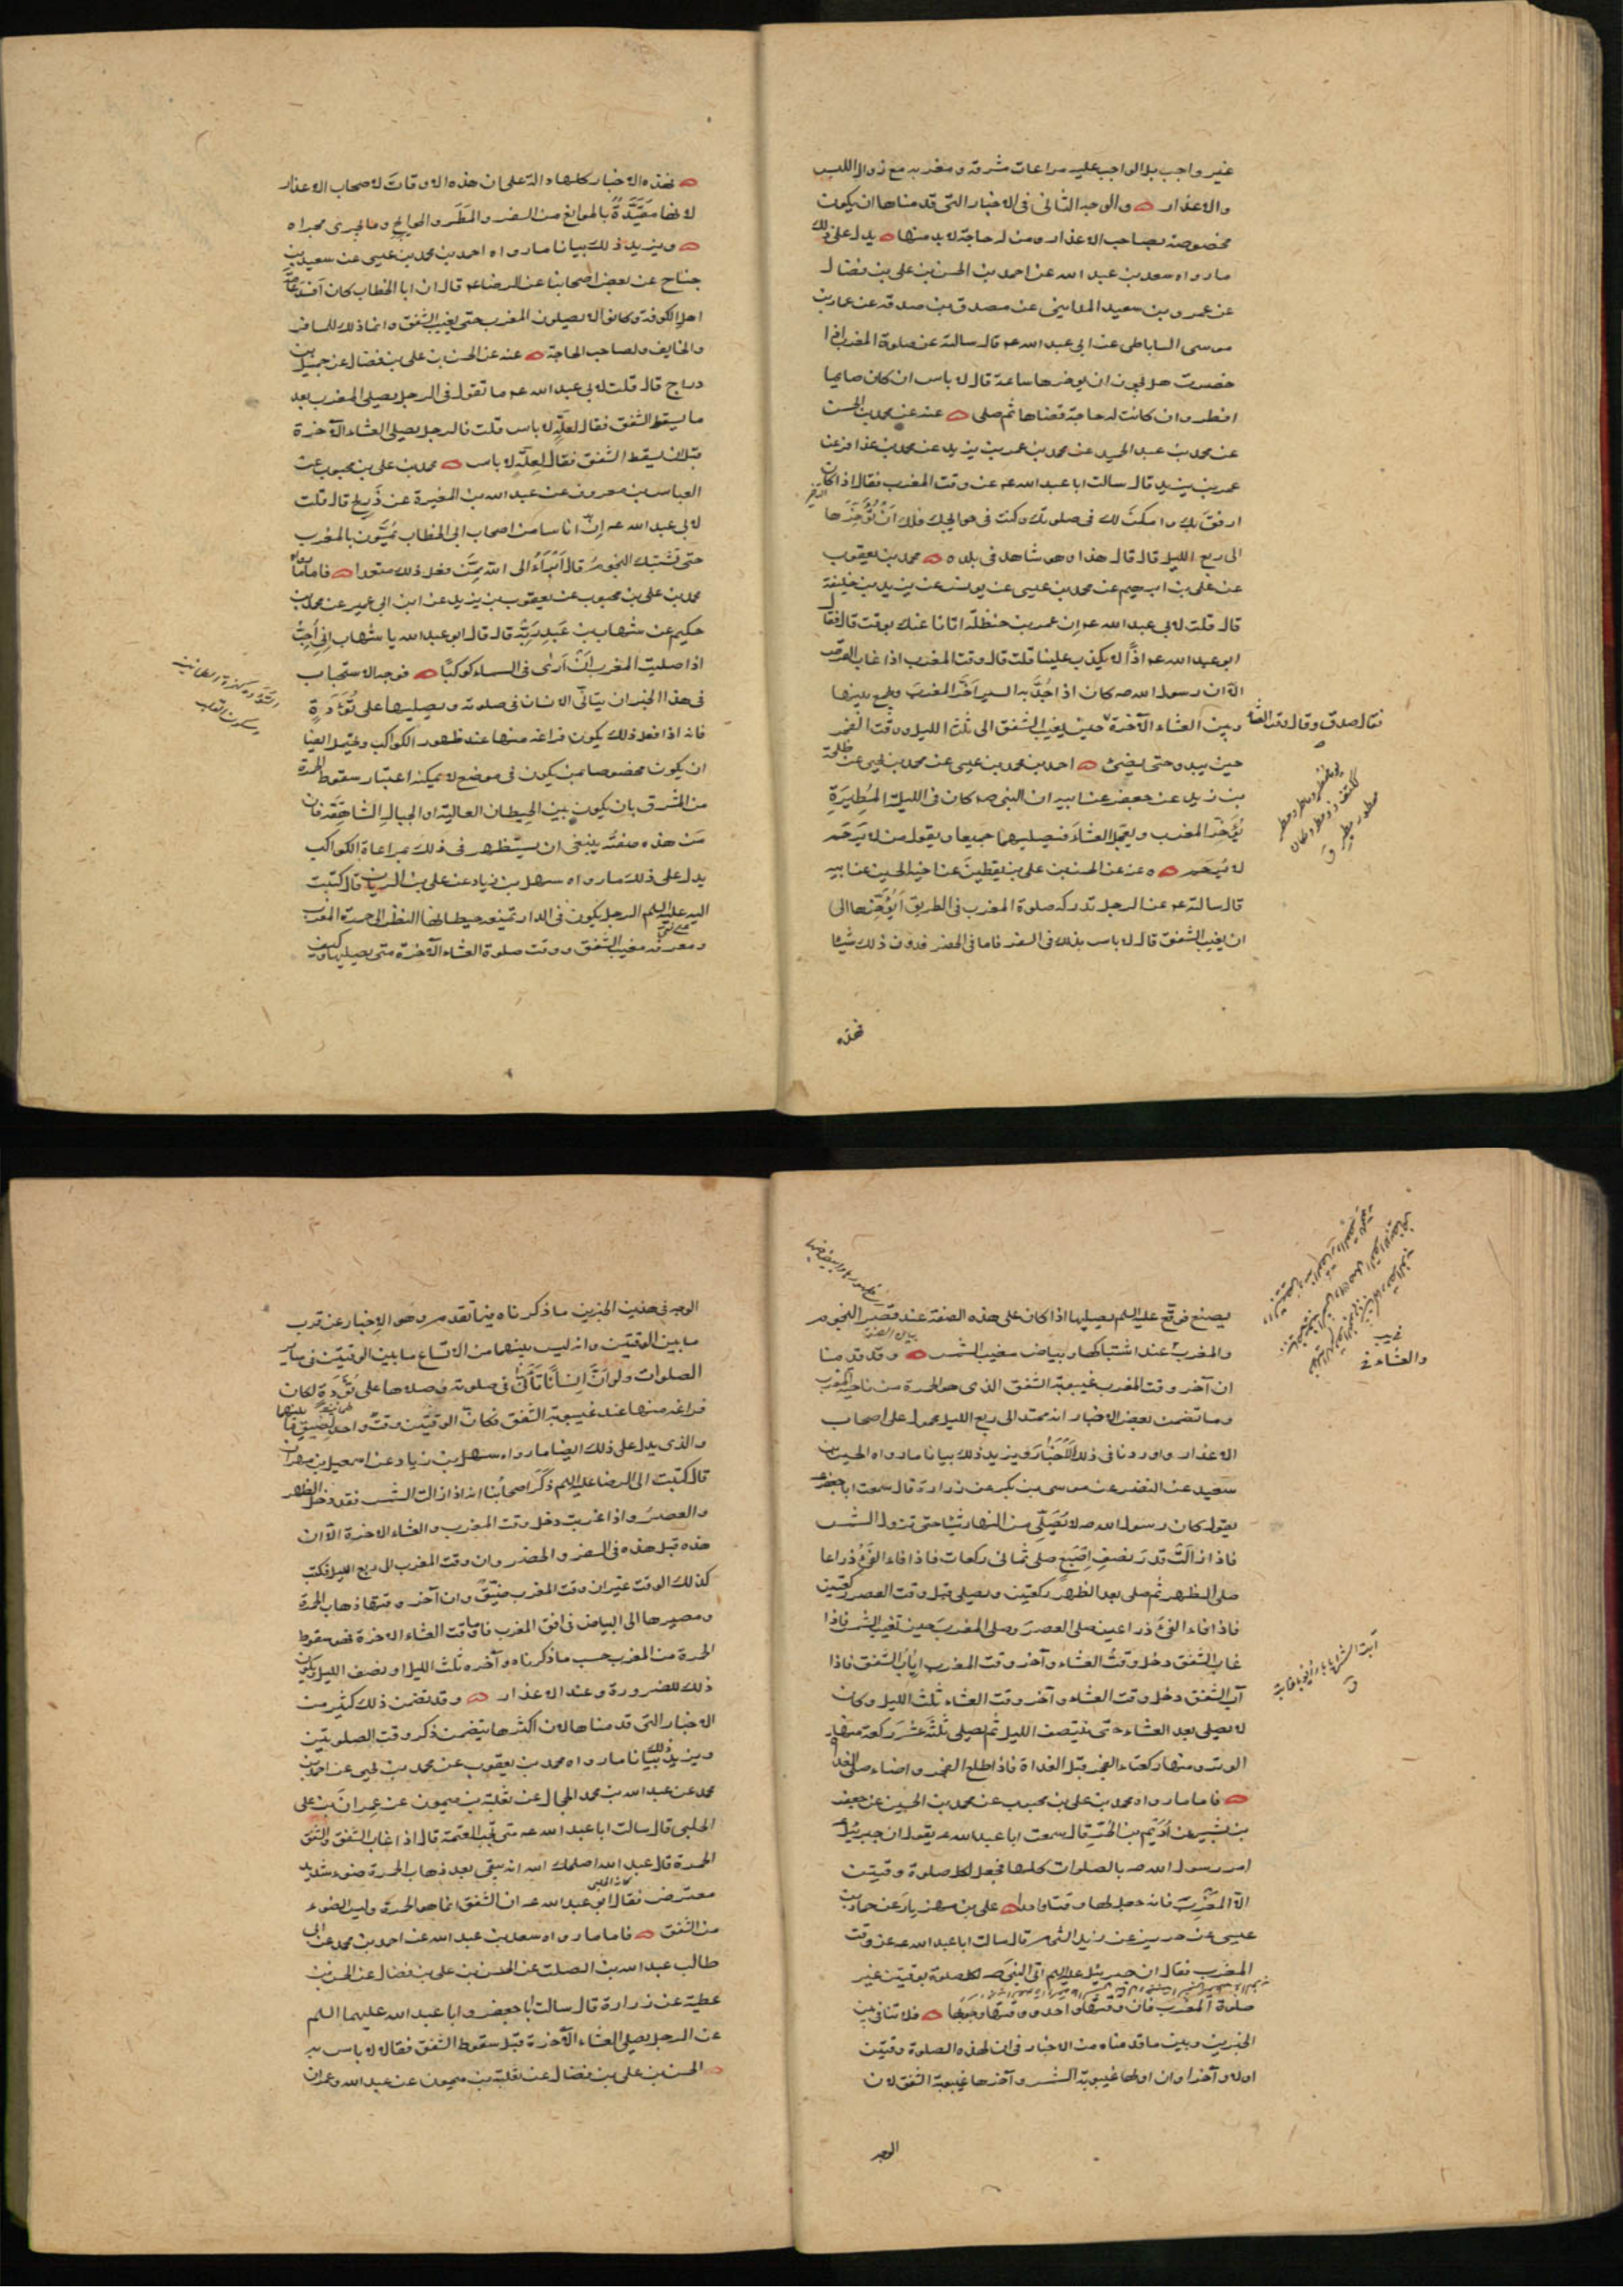 غير واجب بل الواجب عليه مراعات مشرقه و مغربه مع زوال اللبس
والاعذار والوجه الثاني في الاخبار التي قدمناها ان يكون
مخصوصة بصاحب الاعذار ومن له حاجة لا بد منها يدل على ذلك
ما رواه سعد بن عبد الله عن احمد بن الحسن بن علي بن فضال
عن عمرو بن سعيد المدايني عن مصدق بن صدقه عن عمار بن
موسى الساباطي عن ابي عبد الله عم قال سالته عن صلوة المغرب اذا
حضرت هل يجوز ان يوخرها ساعة قال لا باس ان كان صايما
افطر وان كانت له حاجة قضاها ثم صلى عنه عن محمد بن الحسن
عن محمد بن عبد الحميد عن محمد بن عمر بن يزيد عن محمد بن عذافر عن
عمر بن يزيد قال سالت ابا عبد الله عم عن وقت المغرب فقال اذا كان
ارفق بك وامكن لك في صلوتك وكنت في حوائجك فلك ان تؤخرها
الى ربع الليل قال قال هذا وهو شاهد في بلده محمد بن يعقوب
عن علي بن ابرهيم عن محمد بن عيسى عن يونس عن يزيد بن خليفة
قال قلت لابي عبد الله عم ان عمر بن حنظلة اتانا عنك بوقت قال فقال
ابو عبد الله عم اذا لا يكذب علينا قلت قال وقت المغرب اذا غاب القرص
الا ان رسول الله صه كان اذا جد به السير اخر المغرب ويجمع بينها
وبين العشاء الآخرة حين يغيب الشفق الى ثلث الليل ووقت الفجر
فقال صدق وقال وقت العشاء
حين يبدو حتى يضئ احمد بن محمد بن عيسى عن محمد بن يحيى عن طلحة
بن زيد عن جعفر عن ابيه ان النبي صه كان في الليلة المطيرة
يؤخر المغرب ويعجل العشاء فيصليهما جميعا ويقول من لا يرحم
لا يرحم وعنه عن الحسن بن علي بن يقطين عن اخيه الحسين عن ابيه
قال سالته عم عن الرجل تدركه صلوة المغرب في الطريق ايؤخرها الى
ان يغيب الشفق قال لا باس بذلك في السفر فاما في الحضر فدون ذلك شيئا
فهذه
فهذه الاخبار كلها دالة على ان هذه الاوقات لاصحاب الاعذار
لانها مقيدة بالموانع من السفر والمطر والحوائج وما يجرى مجراه
ويزيد ذلك بيانا ما رواه احمد بن محمد بن عيسى عن سعيد بن
جناح عن بعض اصحابنا عن الرضا عم قال ان ابا الخطاب كان افسد عامة
اهل الكوفة وكانوا لا يصلون المغرب حتى يغيب الشفق وانما ذلك للمسافر
والخايف ولصاحب الحاجة عنه عن الحسن بن علي بن فضال عن جميل بن
دراج قال قلت لابي عبد الله عم ما تقول في الرجل يصلي المغرب بعد
ما يسقط الشفق فقال لعلة لا باس قلت فالرجل يصلي العشاء الآخرة
قبل ان يسقط الشفق فقال لعلة لا باس محمد بن علي بن محبوب عن
العباس بن معروف عن عبد الله بن المغيرة عن ذريح قال قلت
لابي عبد الله عم ان اناسا من اصحاب ابي الخطاب يمسون بالمغرب
حتى تشتبك النجوم قال ابراء الى الله ممن فعل ذلك متعمدا فاما ما رواه
محمد بن علي بن محبوب عن يعقوب بن يزيد عن ابن ابي عمير عن محمد بن
حكيم عن شهاب بن عبد ربه قال قال ابو عبد الله يا شهاب اني احب
اذا صليت المغرب ان ارى في السماء كوكبا فوجه الاستحباب
في هذا الخبر ان يتانى الانسان في صلوته ويصليها على تؤدة
فانه اذا فعل ذلك يكون فراغه منها عند ظهور الكواكب ويحتمل ايضا
ان يكون مخصوصا بمن يكون في موضع لا يمكنه اعتبار سقوط الحمرة
من المشرق بان يكون بين الحيطان العالية او الجبال الشاهقة فان
من هذه صفته ينبغي ان يستظهر في ذلك بمراعاة الكواكب
يدل على ذلك ما رواه سهل بن زياد عن علي بن الريان قال كتبت
اليه عليه السلم الرجل يكون في الدار تمنعه حيطانها النظر الى حمرة المغرب
ومعرفة مغيب الشفق ووقت صلوة العشاء الآخرة متى يصليها وكيف
يصنع فوقع عليه السلم يصليها اذا كان على هذه الصفة عند قصر النجوم
والمغرب عند اشتباكها وبياض مغيب الشمس وقد قدمنا
ان آخر وقت المغرب غيبوبة الشفق الذي هو الحمرة من ناحية المغرب
وما تضمن بعض الاخبار انه ممتد الى ربع الليل محمول على اصحاب
الاعذار واوردنا في ذلك الاخبار ويزيد ذلك بيانا ما رواه الحسين بن
سعيد عن النضر عن موسى بن بكر عن زرارة قال سمعت ابا جعفر عم
يقول كان رسول الله صه لا يصلي من النهار شيئا حتى تزول الشمس
فاذا زالت قدر نصف اصبع صلى ثماني ركعات فاذا فاء الفئ ذراعا
صلى الظهر ثم صلى بعد الظهر ركعتين ويصلي قبل وقت العصر ركعتين
فاذا فاء الفئ ذراعين صلى العصر وصلى المغرب حين تغيب الشمس فاذا
غاب الشفق دخل وقت العشاء وآخر وقت المغرب اياب الشفق فاذا
آب الشفق دخل وقت العشاء وآخر وقت العشاء ثلث الليل وكان
لا يصلي بعد العشاء حتى ينتصف الليل ثم يصلي ثلثة عشر ركعة منها
الوتر ومنها ركعتا الفجر قبل الغداة فاذا طلع الفجر واضاء صلى الغداة
فاما ما رواه محمد بن علي بن محبوب عن محمد بن الحسين عن جعفر
بن بشير عن اديم بن الحر قال سمعت ابا عبد الله عم يقول ان جبرئيل
امر رسول الله صه بالصلوات كلها فجعل لكل صلوة وقتين
الا المغرب فانه جعل لها وقتا واحدا علي بن مهزيار عن حماد بن
عيسى عن حريز عن زيد الشحام قال سالت ابا عبد الله عم عن وقت
المغرب فقال ان جبرئيل عليه السلم اتى النبي صه لكل صلوة بوقتين غير
صلوة المغرب فان وقتها واحد ووقتها وجوبها فلا تنافي بين
الخبرين وبين ما قدمناه من الاخبار في ان لهذه الصلوة وقتين
اولا وآخرا وان اولها غيبوبة الشمس وآخرها غيبوبة الشفق لان
الوجه
الوجه في هذين الخبرين ما ذكرناه فيما تقدم وهو الاخبار عن قرب
ما بين الوقتين وانه ليس بينهما من الاتساع ما بين الوقتين في ساير
الصلوات ولو ان انسانا تانى في صلوته وصلاها على تؤدة لكان
فراغه منها عند غيبوبة الشفق فكان الوقتين وقت واحد لضيق ما بينهما
والذي يدل على ذلك ايضا ما رواه سهل بن زياد عن اسمعيل بن مهران
قال كتبت الى الرضا عليه السلم ذكر اصحابنا انه اذا زالت الشمس فقد دخل الظهر
والعصر واذا غربت دخل وقت المغرب والعشاء الاخرة الا ان
هذه قبل هذه في السفر والحضر وان وقت المغرب الى ربع الليل فكتب
كذلك الوقت غير ان وقت المغرب ضيق وان آخر وقتها ذهاب الحمرة
ومصيرها الى البياض في افق المغرب فاما وقت العشاء الاخرة فهو سقوط
الحمرة من المغرب حسب ما ذكرناه وآخره ثلث الليل او نصف الليل ويكون
ذلك للضرورة وعند الاعذار وقد تضمن ذلك كثير من
الاخبار التي قدمناها لان اكثرها يتضمن ذكر وقت الصلوتين
ويزيد ذلك بيانا ما رواه محمد بن يعقوب عن محمد بن يحيى عن احمد بن
محمد عن عبد الله بن محمد الحجال عن ثعلبة بن ميمون عن عمران بن علي
الحلبي قال سالت ابا عبد الله عم متى تجب العتمة قال اذا غاب الشفق والشفق
الحمرة قال عبد الله اصلحك الله انه يبقى بعد ذهاب الحمرة ضوء شديد
معترض فقال ابو عبد الله عم ان الشفق انما هو الحمرة وليس الضوء
من الشفق فاما ما رواه سعد بن عبد الله عن احمد بن محمد عن ابي
طالب عبد الله بن الصلت عن الحسن بن علي بن فضال عن الحسن بن
عطية عن زرارة قال سالت ابا جعفر وابا عبد الله عليهما السلم
عن الرجل يصلي العشاء الآخرة قبل سقوط الشفق فقالا لا باس به
الحسن بن علي بن فضال عن ثعلبة بن ميمون عن عبد الله وعمران